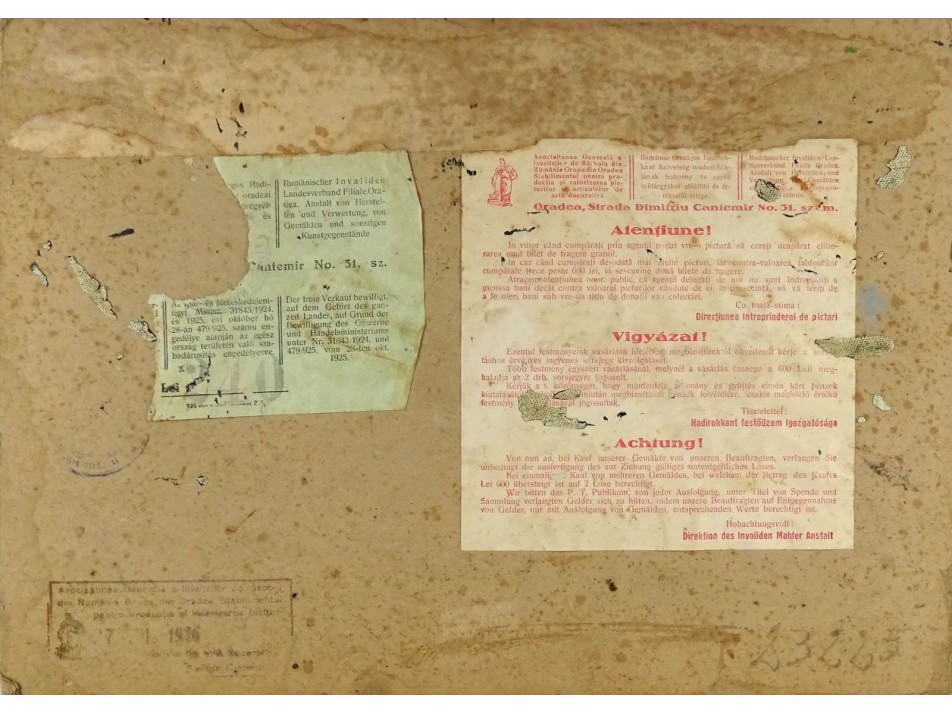 Hadi-
oradeai
egyéb
és
Rumänischer Invaliden
Landesverband Filiale Ora-
dea. Anstalt von Herstel-
len und Verwertung, von
Gemälden und sonstigen
Kunstgegenstände
Cantemir No. 31. sz.
Az ipar- és kereskedelem-
ügyi Minisz. 31843/1924.
és 1925. évi október hó
28-án 479/925. számu en-
gedélye alapján az egész
ország területén való sza-
badárusitás engedélyezve.
Der freie Verkauf bewilligt,
auf dem Gebiet des gan-
zen Landes, auf Grund der
Bewilligung des Gewerbe
und Handelsministeriums
unter Nr. 31843/1924. und
479/925. vom 28-ten okt.
1925.
Lei
340
Asociatiunea Generală a
Invalizilor de Război din
România Grupa din Oradea
Stabilimentul pentru pro-
ducția și valorizarea pic-
turilor și articolelor de
artă decorativă
Romániai Országos Hadirok-
kant Szövetség oradeai fiók-
jának festmény és egyéb
műtárgyakat előállító és ér-
telepe.
Rumänischer Invaliden Lan-
desverband Filiale Oradea.
Anstalt von Herstellen, und
Verwertung, von
Gemälden und
Oradea, Strada Dimitriu Cantemir No. 31. szám.
Atențiune!
In viitor când cumpărați prin agenții noștri vre-o pictură să cereți neapărat elibe-
rarea unui bilet de tragere gratuit.
In caz când cumpărați de-odată mai multe picturi, iar contra-valoarea tablourilor
cumpălate trece peste 600 lei, vi se cuvine două bilete de tragere.
Atragem atențiunea onor. public, că agenții delegați de noi nu sunt îndreptățiți a
incassa bani decât contra valoarei picturilor vândute de ei, în consecință, să vă feriți de
a le oferi bani sub vre-un titlu de donații sau colectări.
Cu toată stima:
Direcțiunea Intreprinderei de pictori
Vigyázat!
Ezentul festményeink vásárlása idejében megbizottunktól okvetlenül kérje a
táshoz érvényes ingyenes sorsjegy kiszolgálását.
Több festmény egyszeri vásárlásánál, melynél a vásárlás összege a 600 Leit meg-
haladja az 2 drb. sorsjegyre jogosult.
Kérjük a t. közönséget, hogy mindenféle adomány és gyűjtés címén kért pénzek
kiutasását miután megbizottaink pénzek felvételére, csakis megfelelő értékü
festmény jogosultak.
Tisztelettel:
Hadirokkant festőüzem igazgatósága
Achtung!
Von nun an, bei Kauf unserer Gemälde von unseren Beauftragten, verlangen Sie
unbedingt die ausfertigung des zur Ziehung gültiges unentgeltliches Loses.
Bei einmalig. Kauf von mehreren Gemälden, bei welchem der Betrag des Kaufes
Lei 600 übersteigt ist auf 2 Lose berechtigt.
Wir bitten das P. T. Publikum, von jeder Ausfolgung, unter Titel von Spende und
Sammlung verlangten Gelder sich zu hüten, indem unsere Beauftragten auf Entgegennahme
von Gelder, nur mit Ausfolgung von Gemälden, entsprechenden Werte berechtigt ist.
Hohachtungsvoll:
Direktion des Invaliden Mahler Anstalt
Asociatiunea Generală a Invalizilor de Răsboi
din România Grupa din Oradea
pentru producția și valorizarea picturi
1936
23223